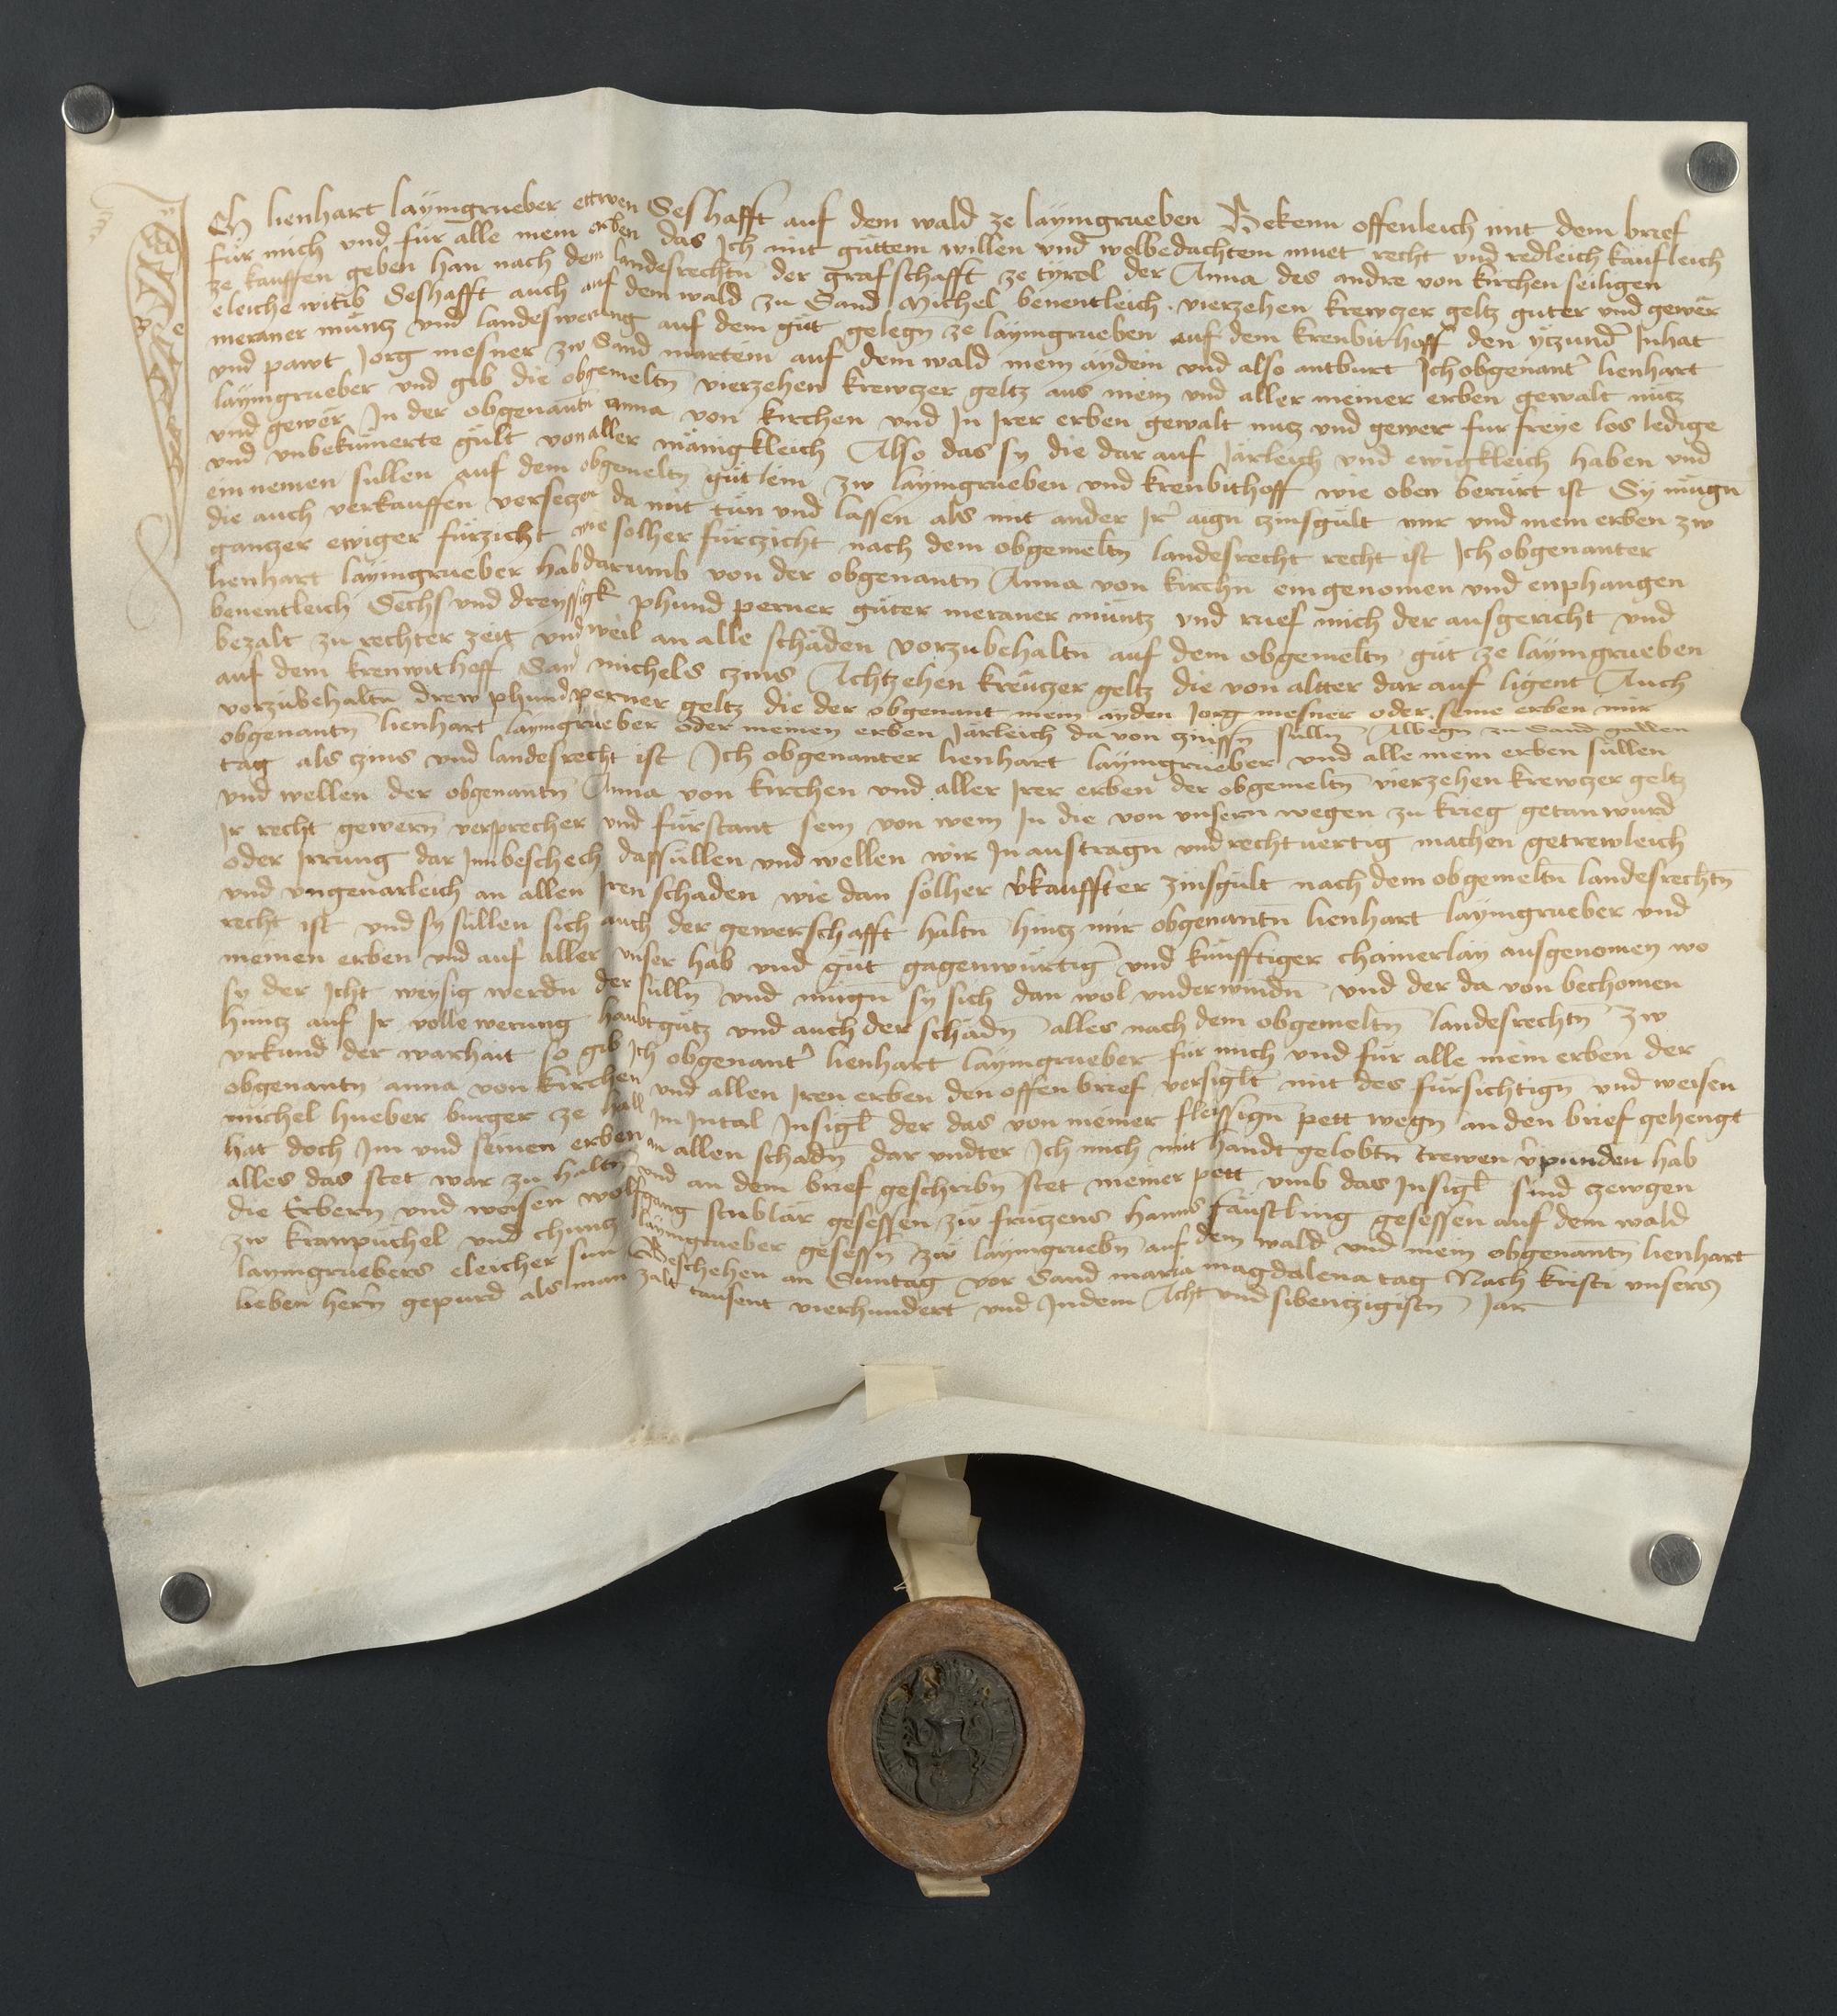 Ich lienhart laymgrueber ettwen Seshafft auf dem wald ze laymgrueben Bekenn offenleich mit dem brief
für mich und für alle mein erben das Ich mit güttem willen vnd wolbedachtem muet recht vnd redleich käufleich
ze kauffen geben han nach dem landesrechtn̄ der grafschafft ze tyrol der Anna des andre von kirchen seiligen
eleiche witib Seshafft auch auf dem wald zu Sand Michel benentleich vierzehen krewczer geltz guter vnd gewer
meraner müntz vnd landeswerung auf dem güt gelegn̄ ze laymgrueben auf dem krenbithoff den yczund Inhat
vnd pawt Jorg mesner zw Sand martein auf dem wald mein äydein vnd also antburt Ich obgenant lienhart
laymgrueber vnd gib die obgemeltn̄ vierzehen krewczer geltz aus mein vnd aller meiner erben gewalt nutz
vnd gewer In der obgenantn̄ anna von kirchen vnd In Irer erben gewalt nutz vnd gewer für freye los ledige
vnd vnbekümerte gült von aller mänigkleich Also das sy die dar auf Järleich vnd ewigkleich haben vnd
einnemen sullen auf dem obgemeltn̄ gütlein zw laymgrueben vnd krenbithoff wie oben berürt ist Sy mügn̄
die auch verkauffen verseczen da mit tün vnd lassen als mit ander Ir aign̄ czinsgült mir vnd mein erben zw
ganczer ewiger fürzicht wie solher fürczicht nach dem obgemeltn̄ landesrecht recht ist Ich obgenanter
lienhart laymgrueber hab darumb von der obgenantn̄ Anna von kirchn̄ ein genomen vnd enphangen
benentleich Sechs vnd dreyssigk phund perner güter meraner müntz vnd ruef mich der ausgericht vnd
bezalt zu rechter zeit vnd weil an alle schäden vorzubehaltn̄ auf dem obgemeltn̄ güt ze laymgrueben
auf dem krenwithoff Sand michels czins Achtzehen kreuczer geltz die von altter dar auf ligent Auch
vorzubehaltn̄ drew phund perner geltz die der obgenant mein äyden Jorg mesner oder seine erben mir
obgenantn̄ lienhart laymgrueber oder meinen erben Järleich da von czinssn̄ sulln̄ Albegn̄ zu Sand gallen
tag als czins vnd landesrecht ist Ich obgenanter lienhart laymgrueber vnd alle mein erben süllen
vnd wellen der obgenantn̄ Anna von kirchen vnd aller Irer erben der obgemeltn̄ vierzehen krewczer geltz
Ir recht gewern̄ versprecher vnd fürstant sein von wem In die von vnsern wegen zu krieg getan wurd
oder Irrung dar Inn beschech das süllen vnd wellen wir In austragn̄ vnd rechtuertig machen getrewleich
vnd vngeuarleich an allen Iren schaden wie dan sölher v̄kauffter zinsgült nach dem obgemeltn̄ landesrechtn̄
recht ist vnd sy süllen sich auch der gewerschafft haltn̄ hintz mir obgenantn̄ lienhart laymgrueber vnd
meinen erben vnd auf aller vnser hab vnd güt gagenwürtig vnd künfftiger chainerlay ausgenomen wo
sy der Icht weysig werdn̄ der sulln̄ vnd mügn̄ sy sich dan wol vnderwindn̄ vnd der da von bechomen
huntz auf Ir volle werung haubtgütz vnd auch der schadn̄ alles nach dem obgemeltn̄ landesrechtn̄ zw
vrkund der warhait so gib Ich obgenant lienhart laymgrueber für mich vnd für alle mein erben der
obgenantn̄ anna von kirchen vnd allen Iren erben den offen brief versiglt mit des fürsichtign̄ vnd weisen
michel hueber burger ze hall Im Intal Insigl der das von meiner fleissign̄ pett wegn̄ an den brief gehengt
hat doch Im vnd seinen erben an allen schadn̄ dar vndter Ich mich mit handt gelobtn̄ trewen v̄punden hab
alles das stet war zu haltn̄ vnd an dem brief geschribn̄ stet meiner pett vmb das Insigl sind czewgen
die Erbern̄ vnd weisen wolfgang stublär gesessen zu fruczens hanns fäustling gesessen auf dem wald
zw kranpüchel vnd chuntz laymgrueber gesessn̄ zw laymgruebn̄ auf dem wald vnd mein obgenantn̄ lienhart
laymgruebers eleicher sun Beschehen an Suntag vor Sand maria magdalena tag Nach kristi vnsers
lieben hern̄ gepurd als man zalt tausent vierhundert vnd Indem Acht vnd sibenczigistn̄ Jar